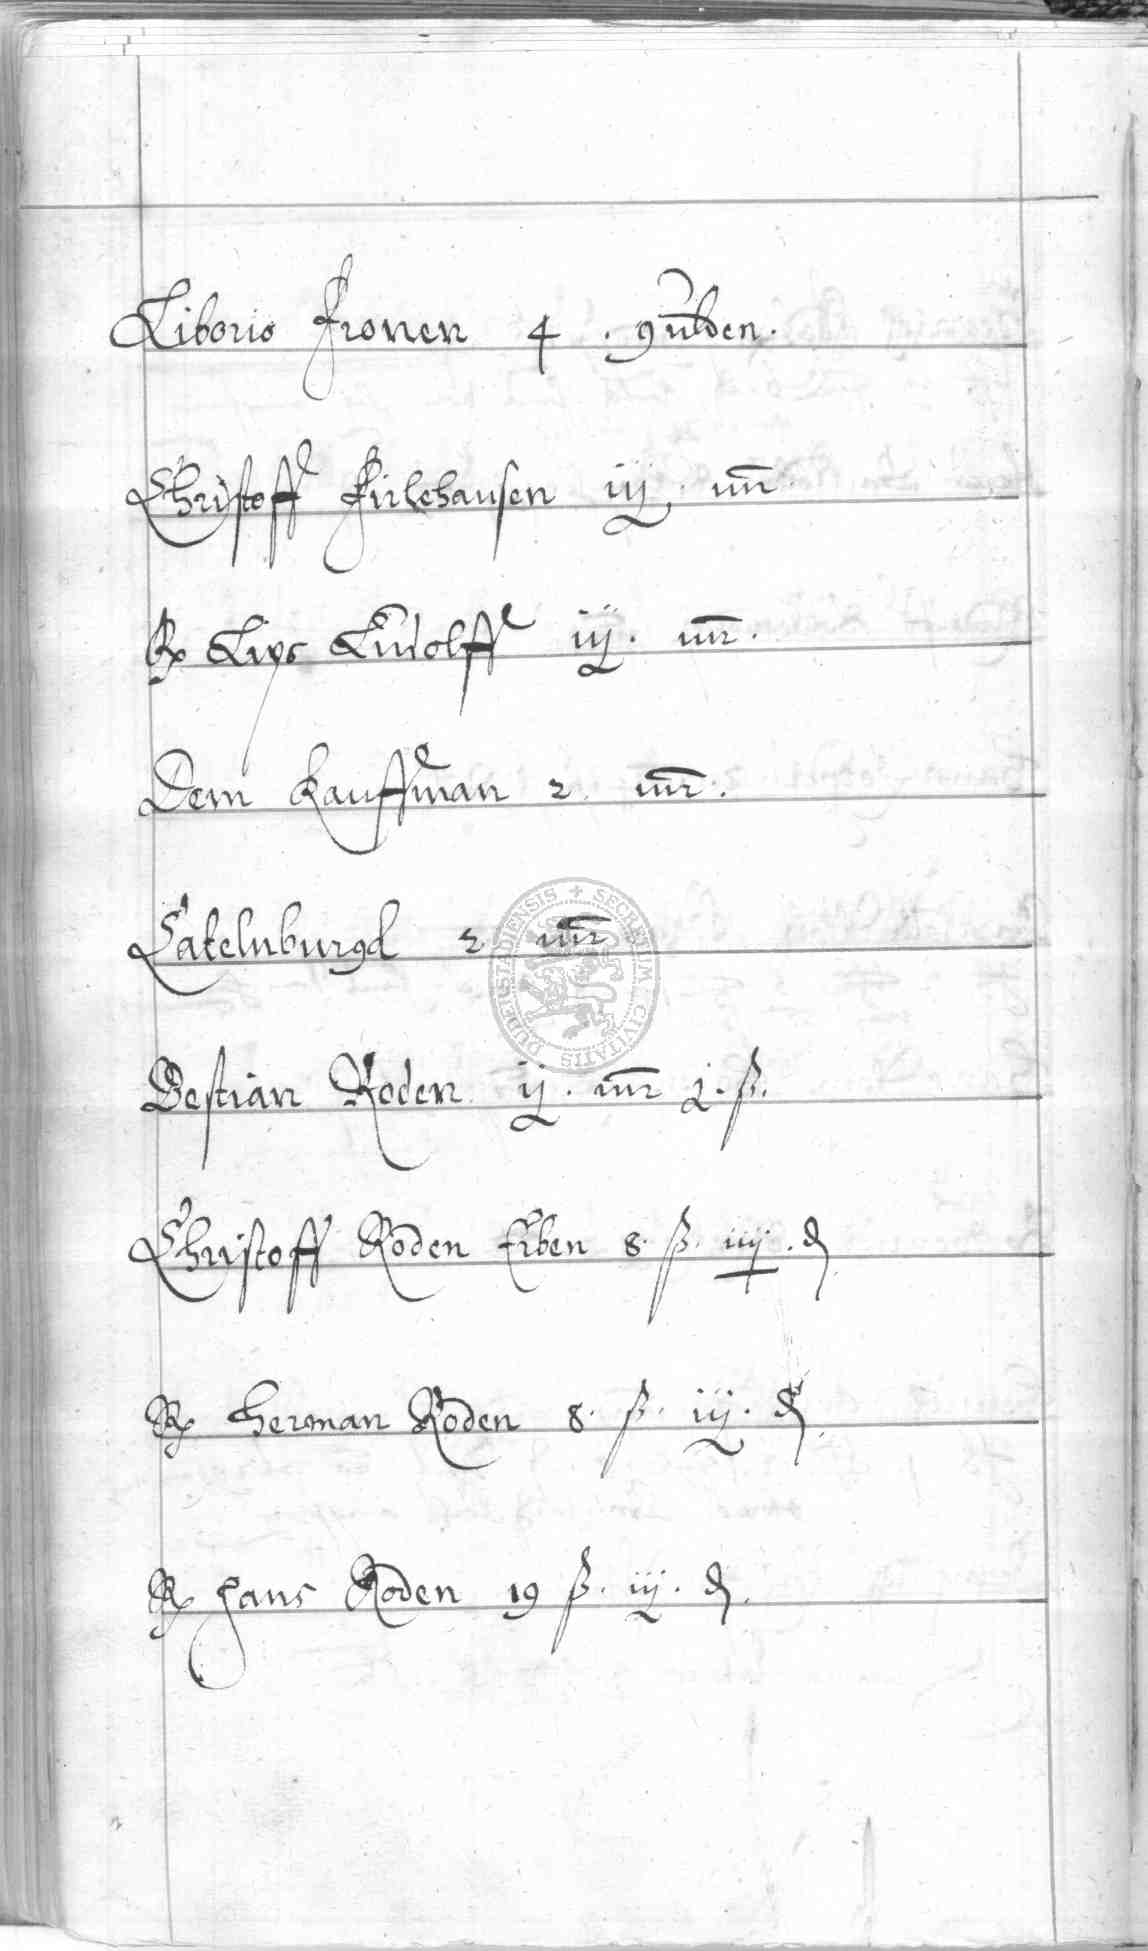 Liborio Fronen 4 . gulden.
Christoff Firlehausen iij . mr.
Rx Lips Ludolff iij . mr.
Dem Kauffman 2. mr.
Catelnburgk 2 mr
Bestian Roden ij . mr j . ß.
Christoff Roden Erben 8. ß. iiij . d
Rx Herman Roden 8. ß. iij . d
Rx Hans Roden 19 ß. iij . d.
SECRETUM CIVITATIS DUDERSTADIENSIS